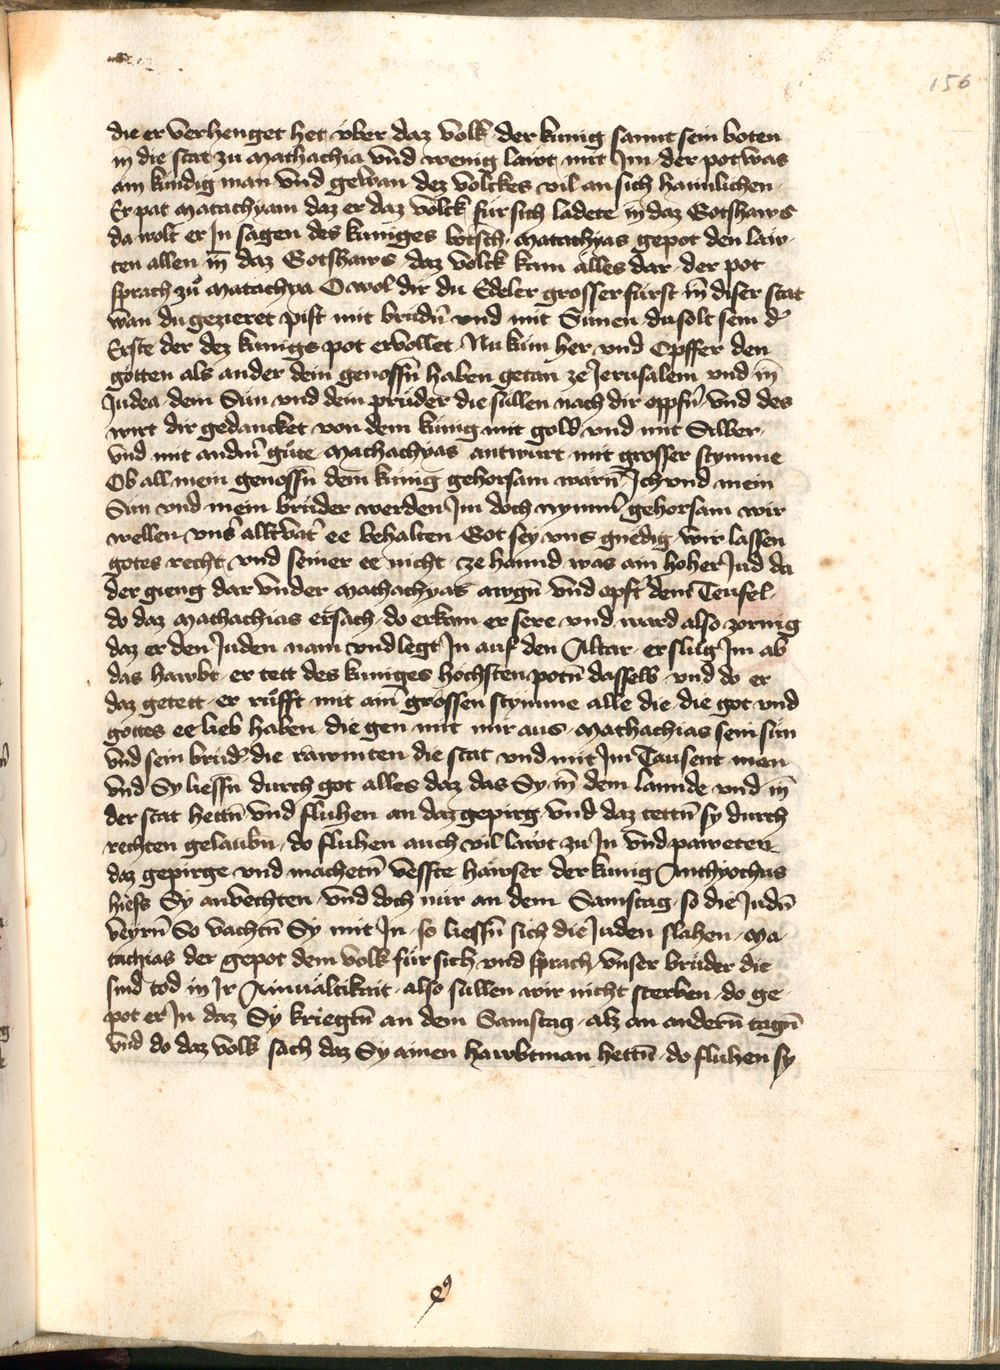 156
die er verhenget het vber daz volk der kunig sannt sein boten
in die stat zu mathachia vnd wenig lawt mit Im der pot was
ain kundig man vnd gewan dez volckes vil an sich haimlichen
Er pat matachyam daz er daz volck für sich ladete in daz Gotshaws
da wolt er In sagen des kuniges botsch. matathyas gepot den law-
ten allen in̄ daz Gotshaws daz volck kam alles dar der pot
sprach zů matachya O wol dir du Edeler grosser fürst in̄ diser stat
wan du gezieret pist mit brudn̄ vnd mit Sünen du solt sein d̕
Erste der dez kunigs pot ervollet Nu kum her vnd Opffer den
gotten als ander dein genossn̄ haben getan ze Jerusalem vnd in̄
Judea dein Sün vnd dein prüder die süllen nach dir oppfn̄ vnd des
wirt dir gedancket von dem künig mit gold vnd mit Silber
vnd mit andn̄ güte mathachyas antwurt mit grosser stymme
Ob all mein genossn̄ dem künig gehorsam wärn̄ Ich vnd mein
Sün vnd mein brüder werden Im doch nymm̄ gehorsam wir
wellen vns̕ alltvät̕ ee behalten Got sey vns gnedig wir lassen
gotes recht vnd seiner ee nicht ze hannd was ain hoher Jud da
der gieng dar vnder mathachyas awgn̄ vnd opft dem Teufel
do daz mathachias ersach do erkam er sere vnd ward also zornig
daz er den Juden nam vnd legt In auf den Altar er slug Im ab
das hawbt er tett des kuniges höchsten potn̄ dasselb vnd do er
daz getett er rüfft mit ain̄ grossen stymme alle die die got vnd
gottes ee lieb haben die gen mit mir aus mathachias sein sün
vnd sein brüd̕ die rawmten die stat vnd mit Im Tausent man
vnd Sy liessn̄ durch got alles daz das Sy in̄ dem lannde vnd in̄
der stat hettn̄ vnd fluhen an daz gepirg vnd daz tettn̄ sy durch
rechten gelaubn̄ do fluhen auch vil lawt zu In vnd paweten
daz gepirge vnd machetn̄ vesste häwser der kunig Anthyochus
hiess Sy anvechten vnd doch nür an dem Samstag so die Judn̄
veyrn̄ So vachtn̄ Sy mit In so liessn̄ sich die Juden slahen ma-
tachias der gepot dem volk für sich vnd sprach vnser brüder die
sind tod in Ir Ainualtikait also süllen wir nicht sterben do ge-
pot er In daz Sy kriegtn̄ an dem Samstag alz an andern̄ tagn̄
vnd do daz volk sach daz Sy ainen hawbtman hettn̄ do fluhen sy